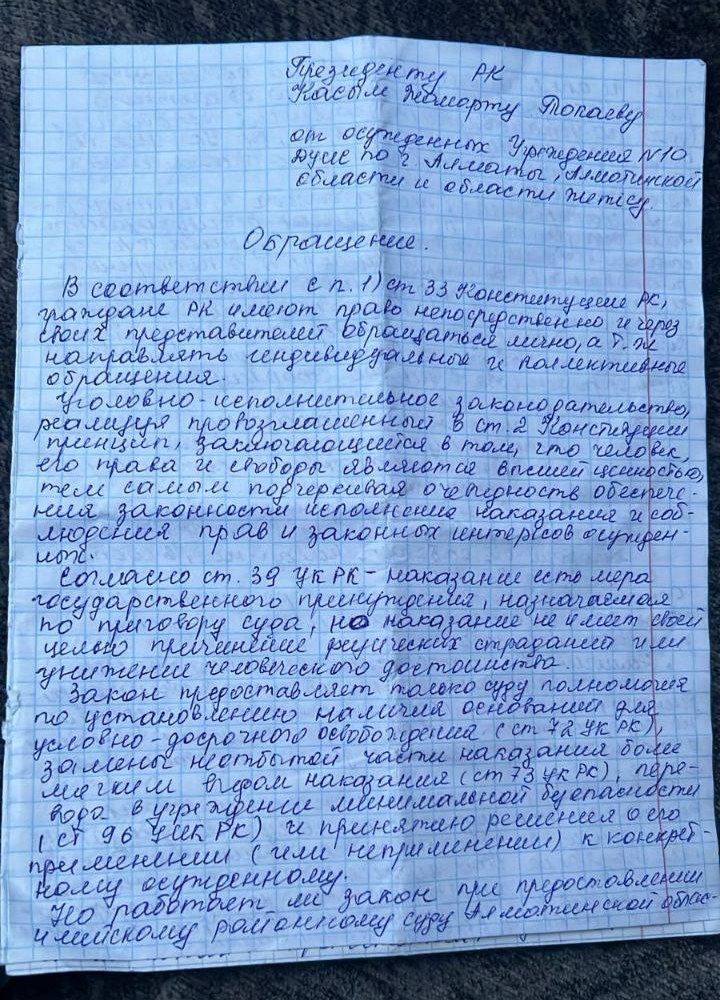 Президенту РК
Касым Жомарту Токаеву
от осужденных Учреждения №10
ДУИС по г Алматы, Алматинской
области и области Жетісу.
Обращение.
В соответствии с п. 1) ст 33 Конституции РК,
граждане РК имеют право непосредственно и через
своих представителей обращаться лично, а т.же
направлять индивидуальные и коллективные
обращения.
Уголовно-исполнительное законодательство,
реализуя провозглашенный в ст. 2 Конституции
принцип, заключающийся в том, что человек,
его права и свободы являются высшей ценностью,
тем самым подчеркивая очевидность обеспече-
ния законности исполнения наказания и соб-
людения прав и законных интересов осужден-
ных.
Согласно ст. 39 УК РК - наказание есть мера
государственного принуждения, назначаемая
по приговору суда, но наказание не имеет своей
целью причинение физических страданий или
унижение человеческого достоинства.
Закон предоставляет только суду полномочия
по установлению наличия оснований для
условно-досрочного освобождения (ст 72 УК РК),
замены неотбытой части наказания более
мягким видом наказания (ст 73 УК РК), пере-
вода в учреждение минимальной безопасности
(ст 96 УИК РК) и принятию решения о его
применении (или неприменении) к конкрет-
ному осужденному.
Но работает ли закон при предоставлении
Илийскому районному суду Алматинской облас-